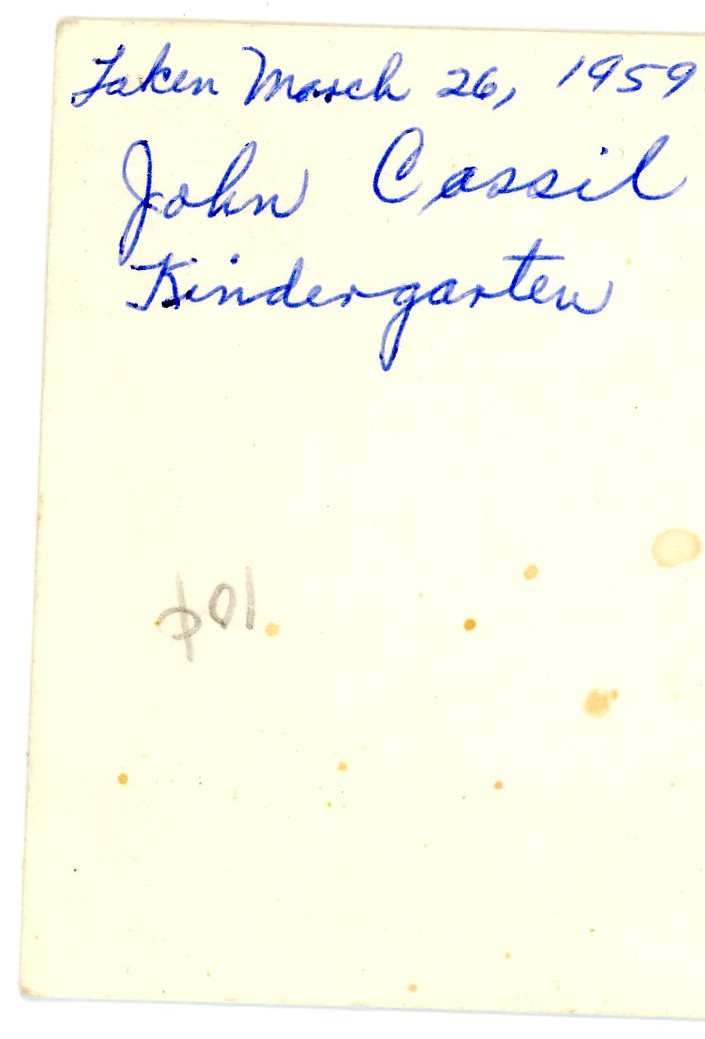 Taken March 26, 1959
John Cassil
Kindergarten
10¢